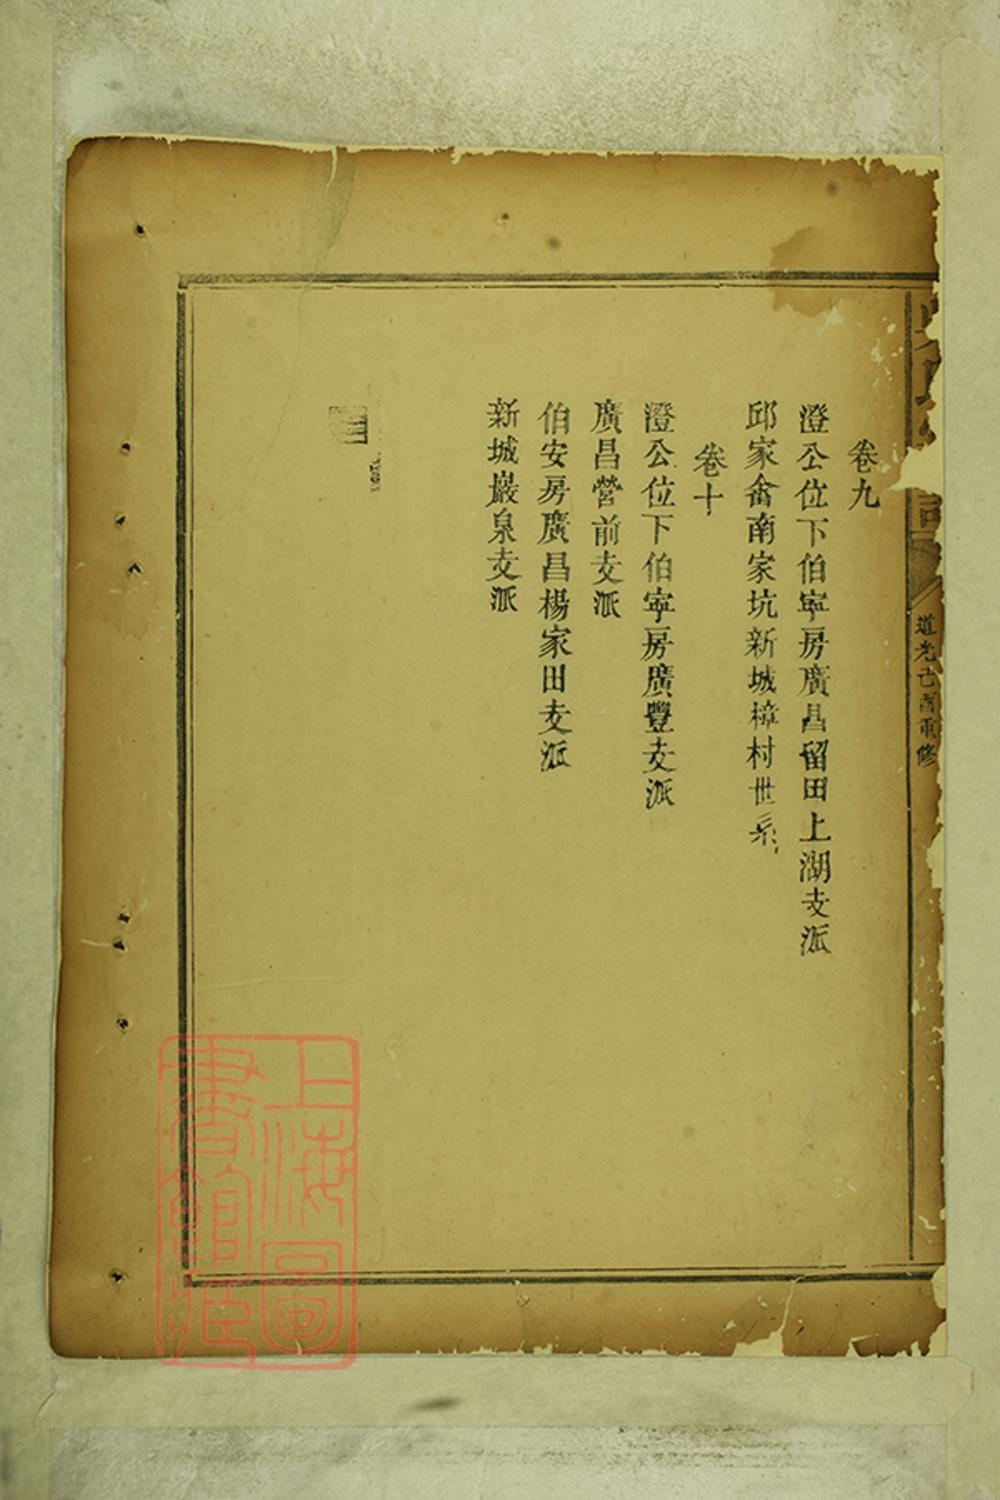 道光己酉重修
卷九
澄公位下伯寜房廣昌留田上湖支派
邱家畲南家坑新城樟村世系
卷十
澄公位下伯寜房廣豐支派
廣昌營前支派
伯安房廣昌楊家田支派
新城巖泉支派
上海圖書館藏